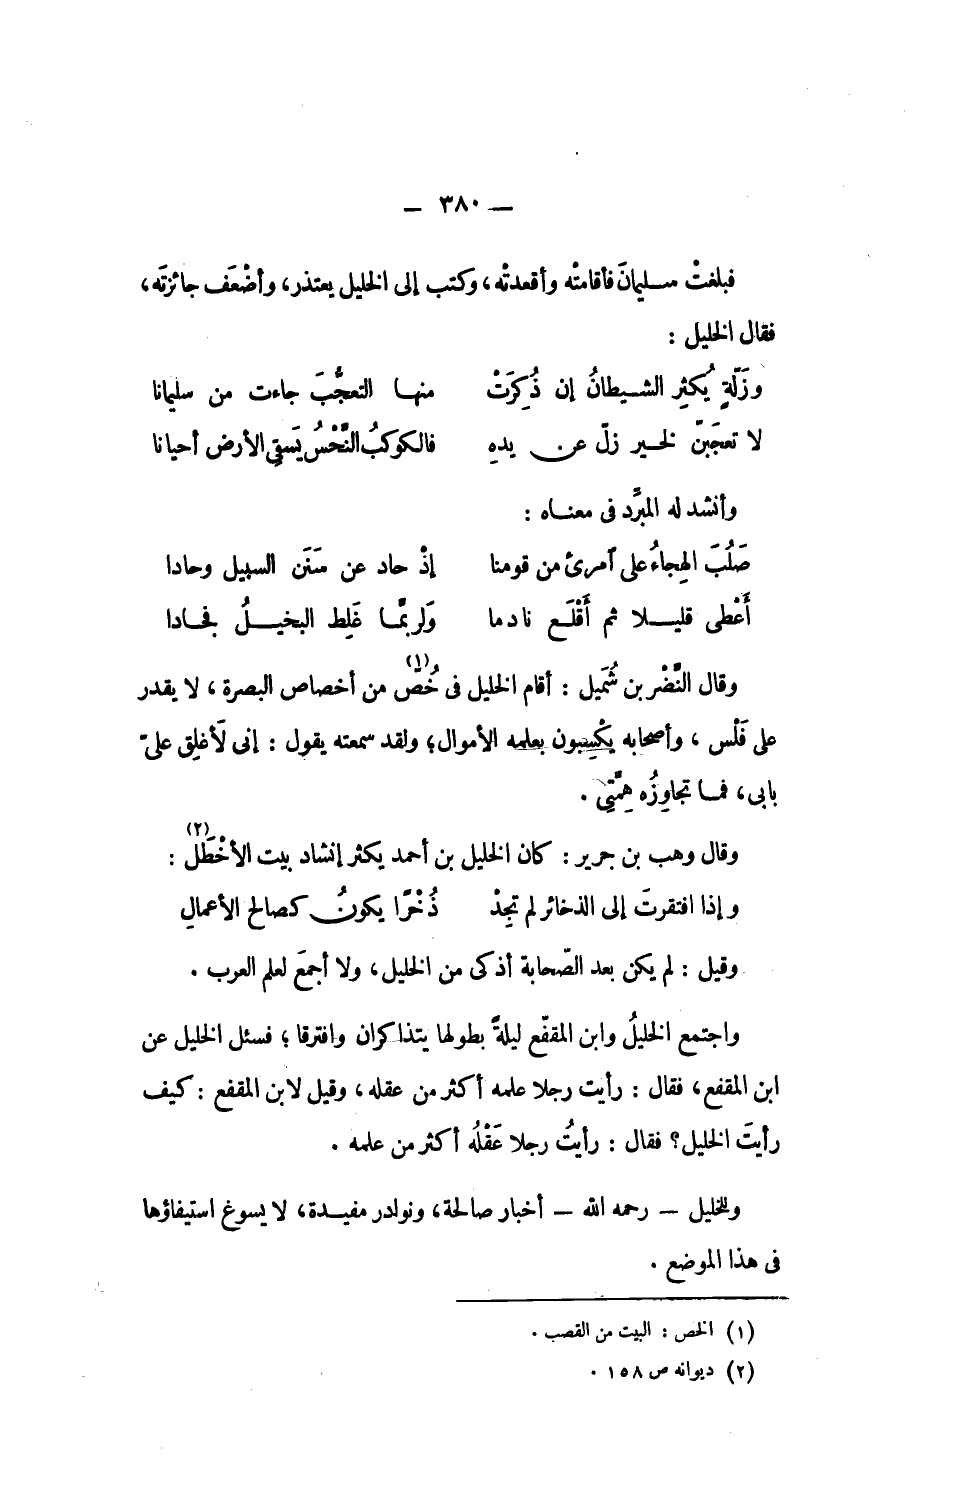 — ٣٨٠ —
فبلغتْ سليمانَ فأقامتْه وأقعدتْه، وكتب إلى الخليل يعتذر، وأضْعَف جائزتَه،
فقال الخليل :
وزَلّةٍ يُكثِر الشيطانُ إن ذُكِرَتْ    منها التعجُّبَ جاءت من سليمانا
لا تعجَبنّ لخير زلّ عن يدهِ    فالكوكبُ النَّحْسُ يَسقِى الأرض أحيانا
وأنشد له المبرَّد فى معناه :
صَلُبَ الهِجاءُ على آمرئ من قومنا    إذْ حاد عن سَنَن السبيل وحادا
أَعْطى قليلا ثم أَقْلَع نادما    وَلربمَّا غَلِط البخيلُ فجادا
وقال النَّضْر بن شُمَيل : أقام الخليل فى خُصّ (١) من أخصاص البصرة، لا يقدر
على فَلْس، وأصحابه يكْسِبون بعلمه الأموال؛ ولقد سمعته يقول : إنى لَأغلِق علىّ
بابى، فما تجاوِزُه هِمَّتِى .
وقال وهب بن جرير : كان الخليل بن أحمد يكثر إنشاد بيت الأخْطَل (٢) :
وإذا افتقرتَ إلى الذخائر لم تجِدْ    ذُخْرًا يكونُ كصالح الأعمالِ
وقيل : لم يكن بعد الصّحابة أذكى من الخليل، ولا أجمعَ لعلم العرب .
واجتمع الخليلُ وابن المقفّع ليلةً بطولها يتذاكران وافترقا؛ فسئل الخليل عن
ابن المقفع، فقال : رأيت رجلا علمه أكثر من عقله، وقيل لابن المقفع : كيف
رأيتَ الخليل؟ فقال : رأيتُ رجلا عَقْلُه أكثر من علمه .
وللخليل — رحمه الله — أخبار صالحة، ونوادر مفيدة، لا يسوغ استيفاؤها
فى هذا الموضع .
(١) الخص : البيت من القصب .
(٢) ديوانه ص ١٥٨ .